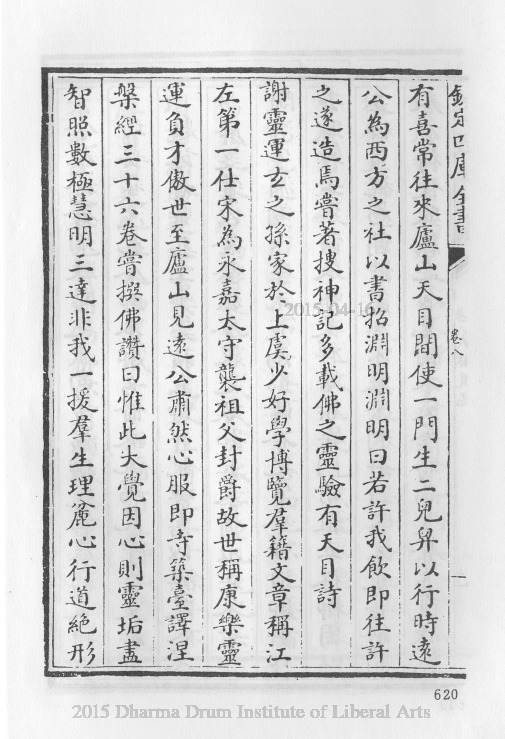 欽定四庫全書
卷八
有喜常往來廬山天目間使一門生二兒舁以行時遠
公為西方之社以書招淵明淵明曰若許我飲即往許
之遂造焉嘗著搜神記多載佛之靈驗有天目詩
謝靈運玄之孫家於上虞少好學博覽羣籍文章稱江
左第一仕宋為永嘉太守襲祖父封爵故世稱康樂靈
運負才傲世至廬山見遠公肅然心服即寺築臺譯湼
槃經三十六卷嘗撰佛讚曰惟此大覺因心則靈垢盡
智照數極慧明三達非我一援羣生理麄心行道絕形
2015-04-16
620
2015 Dharma Drum Institute of Liberal Arts